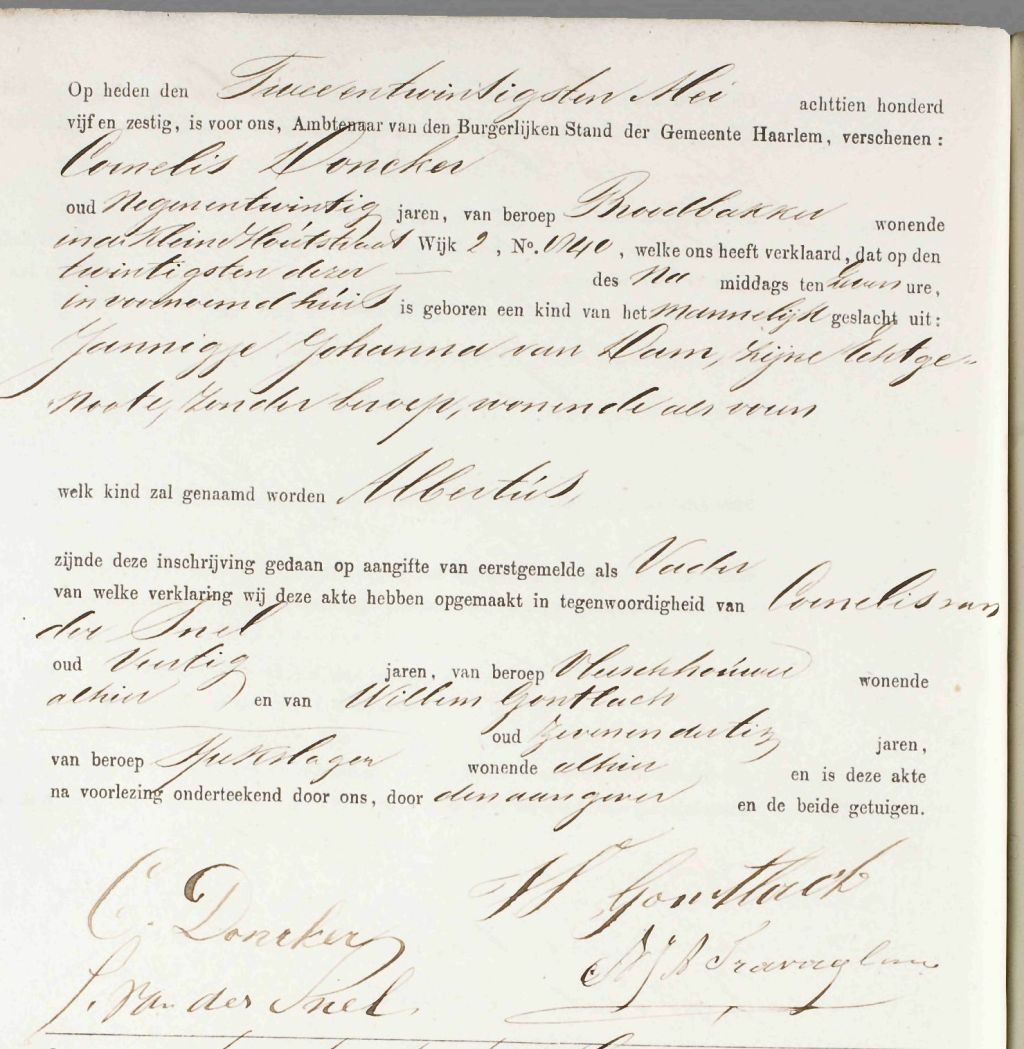 Op heden den Tweeentwintigsten Mei achttien honderd
vijf en zestig, is voor ons, Ambtenaar van den Burgerlijken Stand der Gemeente Haarlem, verschenen:
Cornelis Doncker
oud Negenentwintig jaren, van beroep Broodbakker wonende
in de Kleine Houtstraat Wijk 2, No. 1040, welke ons heeft verklaard, dat op den
twintigsten dezer des Na middags ten zeven ure,
in voornoemd huis is geboren een kind van het mannelijk geslacht uit:
Jannigje Johanna van Dam, zijne Echtge-
noote, zonder beroep, wonende als voren
welk kind zal genaamd worden Albertus,
zijnde deze inschrijving gedaan op aangifte van eerstgemelde als Vader
van welke verklaring wij deze akte hebben opgemaakt in tegenwoordigheid van Cornelis van
der Snel
oud Veertig jaren, van beroep Vleeschhouwer wonende
alhier en van Willem Gontlach
oud zevenendertig jaren,
van beroep Spekslager wonende alhier en is deze akte
na voorlezing onderteekend door ons, door den aangever en de beide getuigen.
C. Doncker W Gontlach
van der Snel